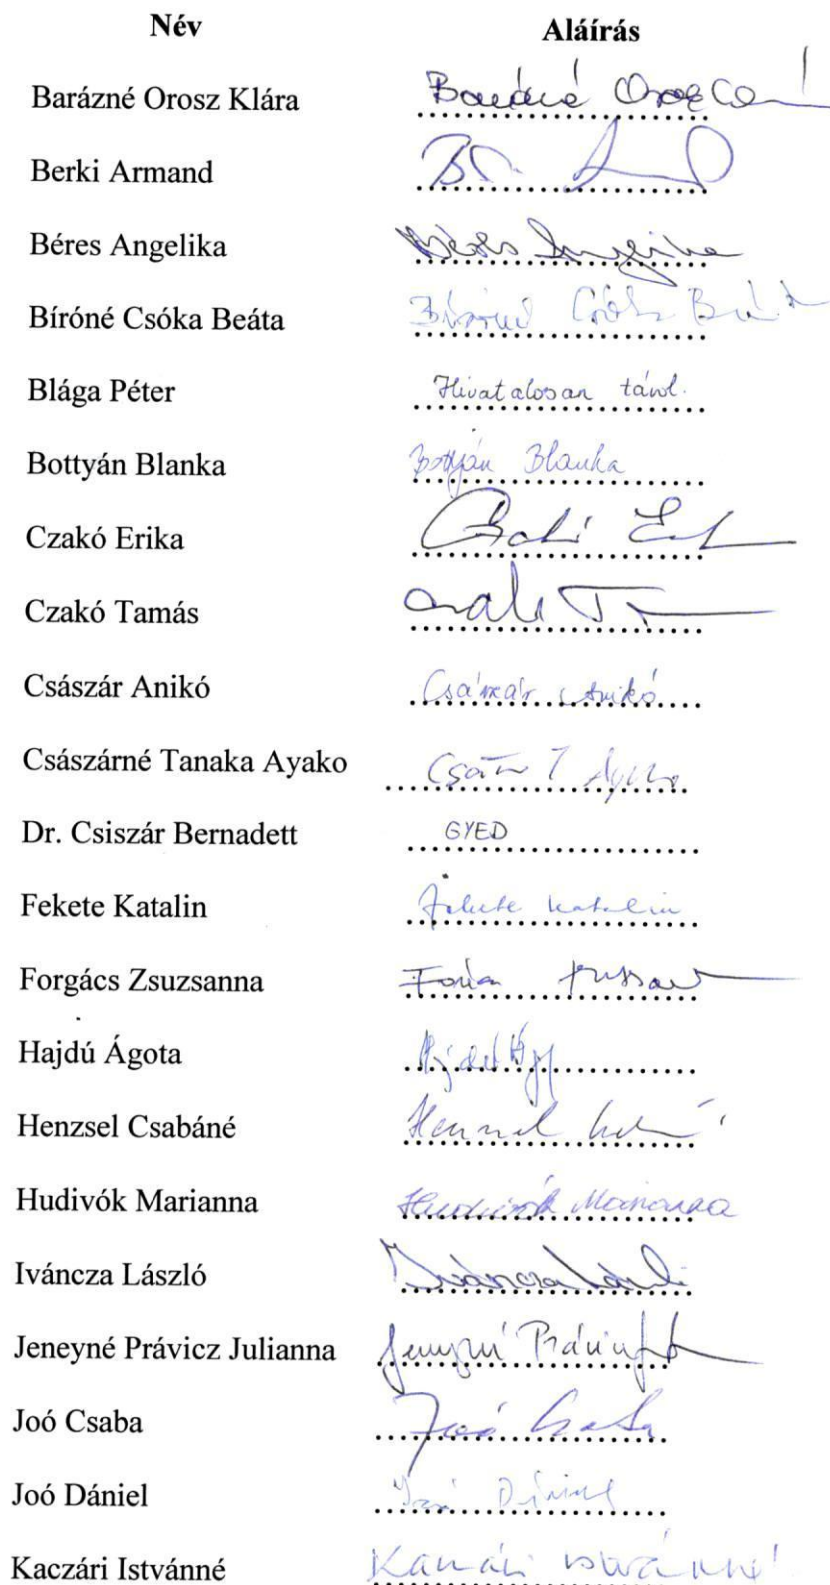 Név Aláírás
Barázné Orosz Klára
Berki Armand
Béres Angelika Béres Angelika
Bíróné Csóka Beáta Bíróné Csóka Beát
Blága Péter Hivatalosan távol.
Bottyán Blanka Bottyán Blanka
Czakó Erika
Czakó Tamás
Császár Anikó Császár Anikó
Császárné Tanaka Ayako
Dr. Csiszár Bernadett GYED
Fekete Katalin Fekete Katalin
Forgács Zsuzsanna
Hajdú Ágota
Henzsel Csabáné
Hudivók Marianna Hudivók Marianna
Iváncza László Iváncza László
Jeneyné Právicz Julianna
Joó Csaba Joó Csaba
Joó Dániel Joó Dániel
Kaczári Istvánné Kaczári Istvánné